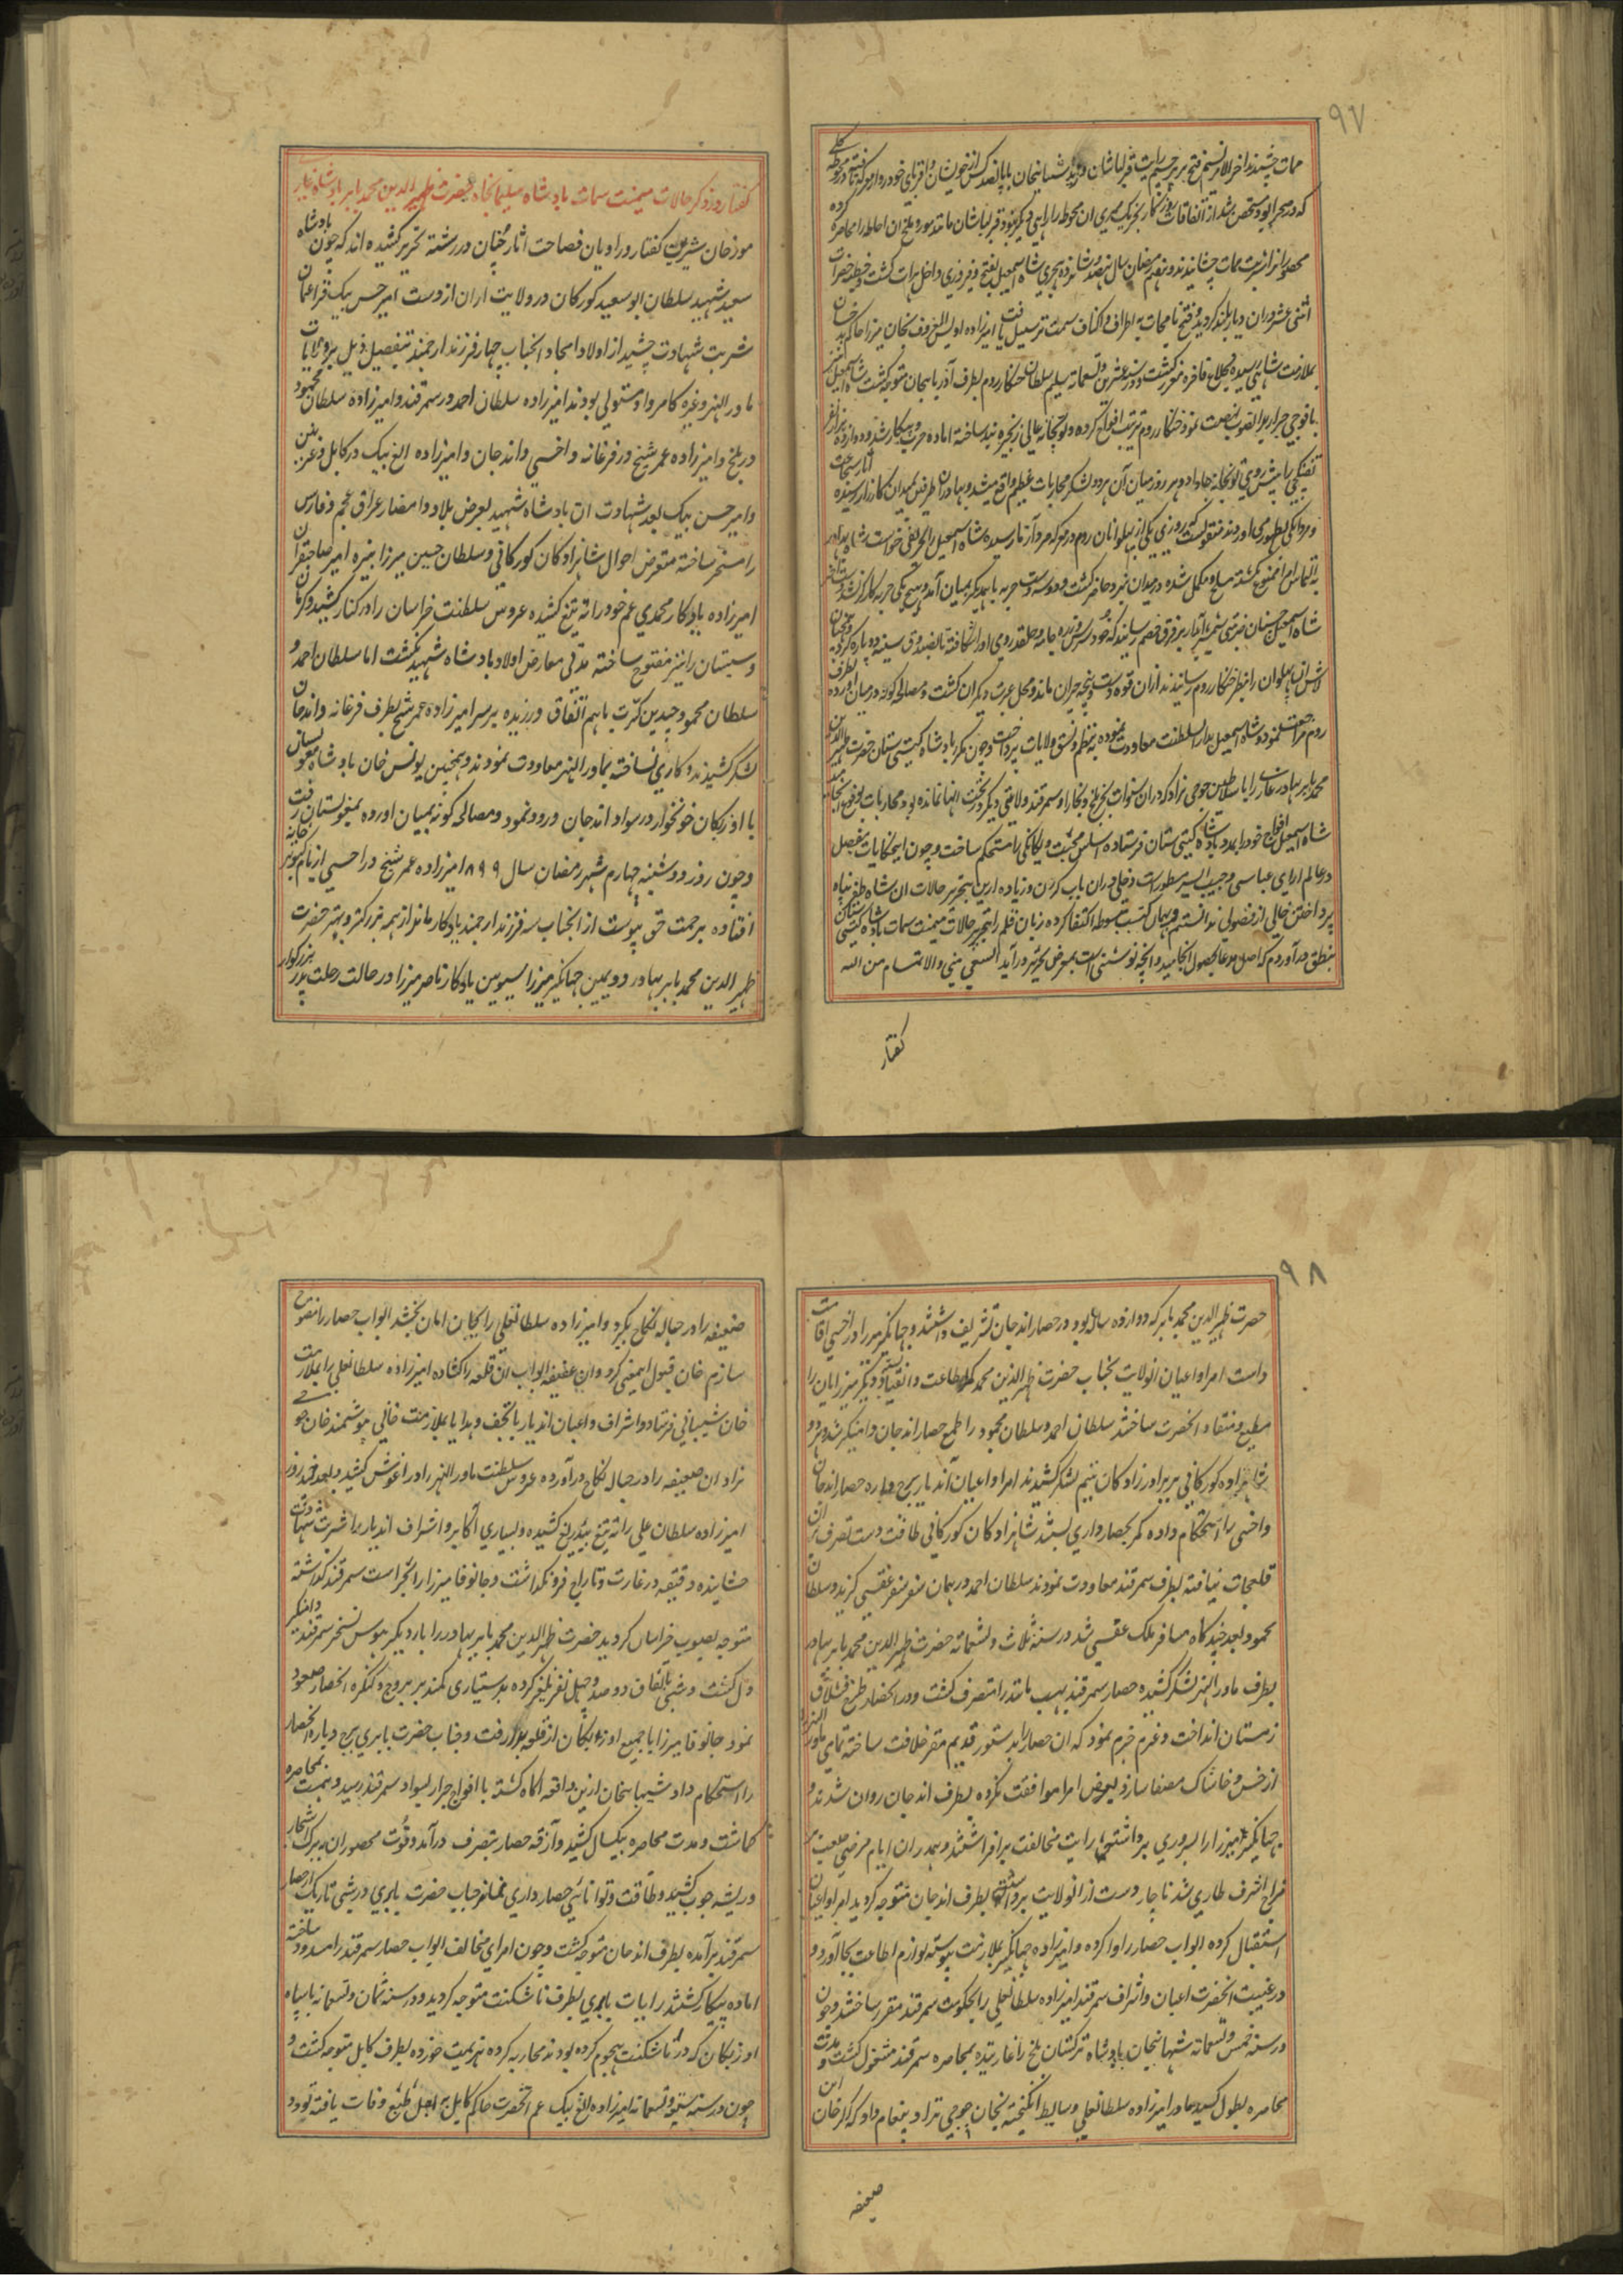 ۹۷
ممات چشیدند اخر الامر نسیم فتح بر پرچم رایت قزلباشان وزید شیبانیخان با پانصد کس از خویشان و اقربای خود رو از معرکه تافته در محوطه
که در صحرا بود متحصن شد از اتفاقات روزگار بجز یک ممری ان محوطه را راهی دیگر نبود قزلباشان مانند مور و ملخ ان احاطه را محاصره کرده
محصورانرا شربت ممات چشانیدند و نهم رمضان سال نهصد و شانزده هجری شاه اسمعیل بفتح و فیروزی داخل هرات گشت و خطبه حضرات
اثنی عشر در ان دیار بلند گردید و فتح نامجات به اطراف و اکناف سمت ترسیل یافت امیرزاده اویس المعروف بخان میرزا حاکم بدخشان
بملازمت شاهی رسیده بخلاع فاخره معزز گشت و در سنه عشرین و تسعمائه سلیم سلطان خنکار روم بطرف آذربایجان متوجه گشت شاه اسمعیل
با فوجی جرار بدانصوب نهضت نمود خنکار روم ترتیب افواج کرده و توپخانه عالی زنجیره بند ساخته اماده حرب و پیکار شد و دوازده هزار نفر
تفنگچی را پیش روی توپخانه جا داد و هر روز میان آن هر دو لشکر محاربات عظیم واقع میشد و بهادران طرفین بمیدان کارزار رسیده اثار شجاعت
و مردانگی بظهور می آوردند منقولست که روزی یکی از پهلوانان روم در معرکه مرد آزما رسیده شاه اسمعیل را بحریفی خواست شاه بهادر
به التماس امرا ممنوع نگشته مسلح و مکمل شده در میدان نبرد حاضر گشت و دو سه دست حربه با یکدیگر بمیان آمد و هیچ یکی حربه کارگر نشد
شاه اسمعیل چنان ضربتی شمشیر آبدار بر فرق خصم رسانید که خود و سر و زره جامه و حلقه روی او را شکافته تا بصندوق سینه دو پاره گردید
لاش ان پهلوان را بنظر خنکار روم رسانیدند از ان قوه دست و پنجه حیران ماند و محل عبرت دیگران گشت و مصالحه گونه در میان آورده بطرف
روم مراجعت نمود و شاه اسمعیل بدار السلطنت معاودت نموده به نظم و نسق ولایات پرداخت و چون مکرر بادشاه گیتی ستان حضرت ظهیر الدین
محمد بابر بهادر غازی را با سلاطین جوجی نژاد که در ان سنوات بجز بلخ و بخارا و سمرقند ولایتی دیگر در تحت انها نمانده بود محاربات بوقوع انجامید
شاه اسمعیل افواج خود را بمدد بادشاه گیتی ستان فرستاده اساس محبت و یگانگی را مستحکم ساخت و چون اینحکایات بتفصیل
در عالم ارای عباسی و حبیب السیر مسطور است دخلی در ان باب کردن و زیاده از ین بتحریر حالات ان شاه ظفر پناه
پرداختن خالی از فضولی ندانستم و بهمان کتب مبسوطه اکتفا کرده زبان قلم را بتحریر حالات میمنت سمات بادشاه گیتی ستان
بنطق در آوردم که اصل مدعا بحصول انجامید و انچه نوشتنی است بمعرض تحریر در آید السعی منی و الاتمام من الله
گفتار
گفتار در ذکر حالات میمنت سمات بادشاه سلیمانجاه حضرت ظهیر الدین محمد بابر بادشاه غازی
مورخان شیرین گفتار و راویان فصاحت اثار چنان در رشته تحریر کشیده اند که چون بادشاه
سعید شهید سلطان ابو سعید کورکان در ولایت اران از دست امیر حسن بیک قراعثمان
شربت شهادت چشید از اولاد امجاد انجناب چهار فرزند ارجمند بتفصیل ذیل بر ولایات
ماورالنهر وغیره کامروا و مستولی بودند امیرزاده سلطان احمد در سمرقند و امیرزاده سلطان محمود
در بلخ و امیرزاده عمر شیخ در فرغانه و اخسی و اندجان و امیرزاده الغ بیک در کابل و غزنین
و امیر حسن بیک بعد شهادت ان بادشاه شهید بعرض بلاد و امصار عراق عجم و فارس
را مسخر ساخته متعرض احوال شاهزادکان کورکانی و سلطان حسین میرزا نبیره امیر صاحبقران
امیرزاده یادکار محمدی عم خود را ته تیغ کشیده عروس سلطنت خراسان را در کنار کشید و کرمان
و سیستان را نیز مفتوح ساخته مدتی معارض اولاد بادشاه شهید نگشت اما سلطان احمد و
سلطان محمود چندین کرت با هم اتفاق ورزیده بر سر امیرزاده عمر شیخ بطرف فرغانه و اندجان
لشکر کشیدند و کاری نساخته بماورالنهر معاودت نمودند و همچنین یونس خان بادشاه مغولستان
با اوزبکان خونخوار در سواد اندجان ورود نمود و مصالحه گونه بمیان اورده بمغولستان رفت
و چون روز دوشنبه چهارم شهر رمضان سال ۸۹۹ امیرزاده عمر شیخ در اخسی از بام کبوتر خانه
افتاده برحمت حق پیوست از انجناب سه فرزند ارجمند یادکار ماند از همه بزرکتر و بهتر حضرت
ظهیر الدین محمد بابر بهادر دویمین جهانگیر میرزا سیومین یادکار ناصر میرزا در حالت رحلت پدر بزرکوار
۹۸
حضرت ظهیر الدین محمد بابر که دوازده ساله بود در حصار اندجان تشریف داشتند و جهانگیر میرزا در اخسی اقامت
داست امرا و اعیان انولایت بجناب حضرت ظهیر الدین محمد کمر اطاعت و انقیاد بسته و دیگر میرزایان را
مطیع و منقاد انحضرت ساختند سلطان احمد و سلطان محمود را طمع حصار اندجان دامنگیر شد و هر دو
شاهزاده کورکانی بر برادرزادکان یتیم لشکر کشیدند امرا و اعیان آندیار برج و باره حصار اندجان
و اخسی را استحکام داده کمر بحصارداری بستند شاهزادکان کورکانی طاقت دست تصرف بر ان
قلعجات نیافته بطرف سمرقند معاودت نمودند سلطان احمد در همان سفر سفر عقبی گزید و سلطان
محمود بعد چندگاه مسافر ملک عقبی شد در سنه ثلاث و تسعمائه حضرت ظهیر الدین محمد بابر بهادر
بطرف ماورالنهر لشکر کشیده حصار سمرقند بهشت مانند را متصرف گشت و در انحصار طرح قشلاق
زمستان انداخت و عزم جزم نمود که ان حصار را بدستور قدیم مقر خلافت ساخته تمامی ماورالنهر را
از خس و خاشاک مصفا سازد بعرض امرا موافقت نکرده بطرف اندجان روان شدند و
جهانگیر میرزا را بسروری برداشته رایت مخالفت برافراشتند و همدران ایام مرضی صعب بر
مزاج اشرف طاری شد ناچار دست از انولایت برداشته بطرف اندجان متوجه گردید امرا و اعیان
استقبال کرده ابواب حصار را وا کرده و امیرزاده جهانگیر بملازمت پیوسته لوازم اطاعت بجا آورد و
در غیبت انحضرت اعیان و اشراف سمرقند امیرزاده سلطانعلی را بحکومت سمرقند مقرر ساختند و چون
در سنه خمس و تسعمائه شیبانیخان بادشاه ترکستان بلخ را غارتیده بمحاصره سمرقند مشغول گشت و مدت
محاصره بطول کشید مادر امیرزاده سلطانعلی وسایط انگیخته بخان جوجی نژاد پیغام داد که اگر خان این
ضعیفه
ضعیفه را در حباله نکاح بگیرد و امیرزاده سلطانعلی را بجان امان بخشد ابواب حصار را مفتوح
سازم خان قبول اینمعنی کرد و ان عفیفه ابواب ان قلعه را کشاده امیرزاده سلطانعلی را بملازمت
خان شیبانی فرستاد و اشراف و اعیان اندیار با تحف و هدایا بملازمت خانی پیوستند خان جوجی
نژاد ان ضعیفه را در حبال نکاح در آورده عروس سلطنت ماورالنهر را در اغوش کشید و بعد چند روز
امیرزاده سلطان علی را ته تیغ بیدریغ کشیده و بسیاری اکابر و اشراف اندیار را شربت شهادت
چشانیده دقیقه در غارت و تاراج فرونگذاشت و جانوفا میرزا را بحراست سمرقند گذاشته
متوجه بصوب خراسان گردید حضرت ظهیر الدین محمد بابر بهادر را بار دیگر هوس تسخیر سمرقند دامنگیر
دل گشت و شبی باتفاق دو صد و چهل نفر یلغر کرده بدستیاری کمند بر بروج و کنگره انحصار صعود
نمود جانوفا میرزا با جمیع اوزبکان از قلعه بدر رفت و جناب حضرت بابری برج و باره انحصار
را استحکام داد شیبانیخان ازین واقعه اگاه گشته با افواج جرار بسواد سمرقند رسید و همت بمحاصره
گماشت و مدت محاصره بیکسال کشید و آزقه حصار بتصرف درآمد و قوت محصوران به برگ اشجار
و ریشه چوب کشید و طاقت و توانائی حصارداری نماند جناب حضرت بابری در شبی تاریک از حصار
سمرقند برآمده بطرف اندجان متوجه گشت و چون امرای مخالف ابواب حصار سمرقند را مسدود ساخته
اماده پیکار گشتند رایات بابری بطرف تاشکنت متوجه گردید و در سنه ثمان و تسعمائه با سپاه
اوزبکان که در تاشکنت هجوم کرده بودند محاربه کرده هزیمت خورده بطرف کابل متوجه گشت و
چون در سنه سبع و تسعمائه امیرزاده الغ بیک عم انحضرت حاکم کابل به اجل طبیعی وفات یافته بود و